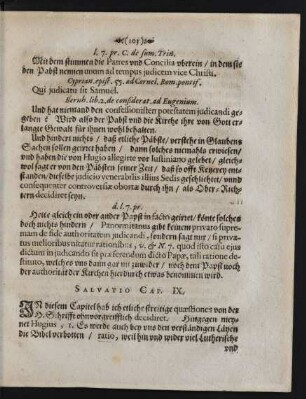 (105)
l. 7. pr. C. de sum. Trin.
Mit dem stimmen die Patres und Concilia uberein / in dem sie
den Pabst nennen unum ad tempus judicem vice Christi.
Cyprian. epist. 55. ad Cornel. Rom. pontif.
Qui judicatu sit Samuel.
Bernh. lib. 2. de considerat. ad Eugenium.
Und hat niemand den confessionisten potestatem judicandi ge-
geben: Wird also der Pabst und die Kirche ihre von Gott er-
langte Gewalt für ihnen wohl behalten.
Und hindert nichts / daß etliche Päbste / verstehe in Glaubens
Sachen sollen geirret haben / dann solches niemahls erwiesen /
und haben die von Hugio allegirte vor Iustiniano gelebt / gleich-
wol sagt er von den Päbsten seiner Zeit / daß so offt Ketzerey ent-
standen / dieselbe judicio venerabilis illius Sedis geschlichtet / unnd
consequenter controversiæ obortæ durch ihn / als Ober-Rich-
tern decidiret seyn.
d. l. 7. pr.
Hette gleich ein oder ander Papst in facto geirret / könte solches
doch nichts hindern / Panormitanus gibt keinem privato supre-
mam de fide authoritatem judicandi, sondern sagt nur / si priva-
tus melioribus nitatur rationibus, v. & N. 7. quod isto casu ejus
dictum in judicando sit præferendum dicto Papæ, tali ratione de-
stituto, welches uns dann gar nit zuwider / noch dem Papst noch
der authorität der Kirchen hierdurch etwas benommen wird.
SALVATIO CAP. IX.
IN diesem Capitel hab ich etliche streitige quæstiones von der
H. Schrifft ohnvorgreifflich decidiret. Hingegen mey-
net Hugius, 1. Es werde auch bey uns den verständigen Läyen
die Bibel verbotten / ratio, weil hin und wider viel Lutherische
und